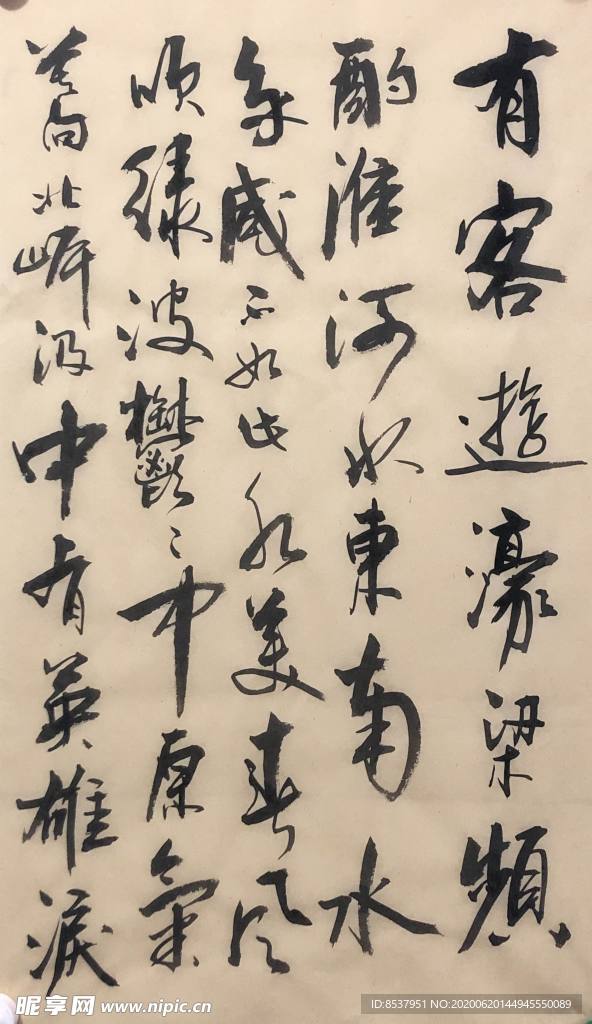 有客遊濠梁頻
酌淮河水東南水
多咸不如此水美春風
吹綠波鬱々中原氣
莫向北岸汲中有英雄淚
昵享网 www.nipic.cn
ID:8537951 NO:20200620144945550089